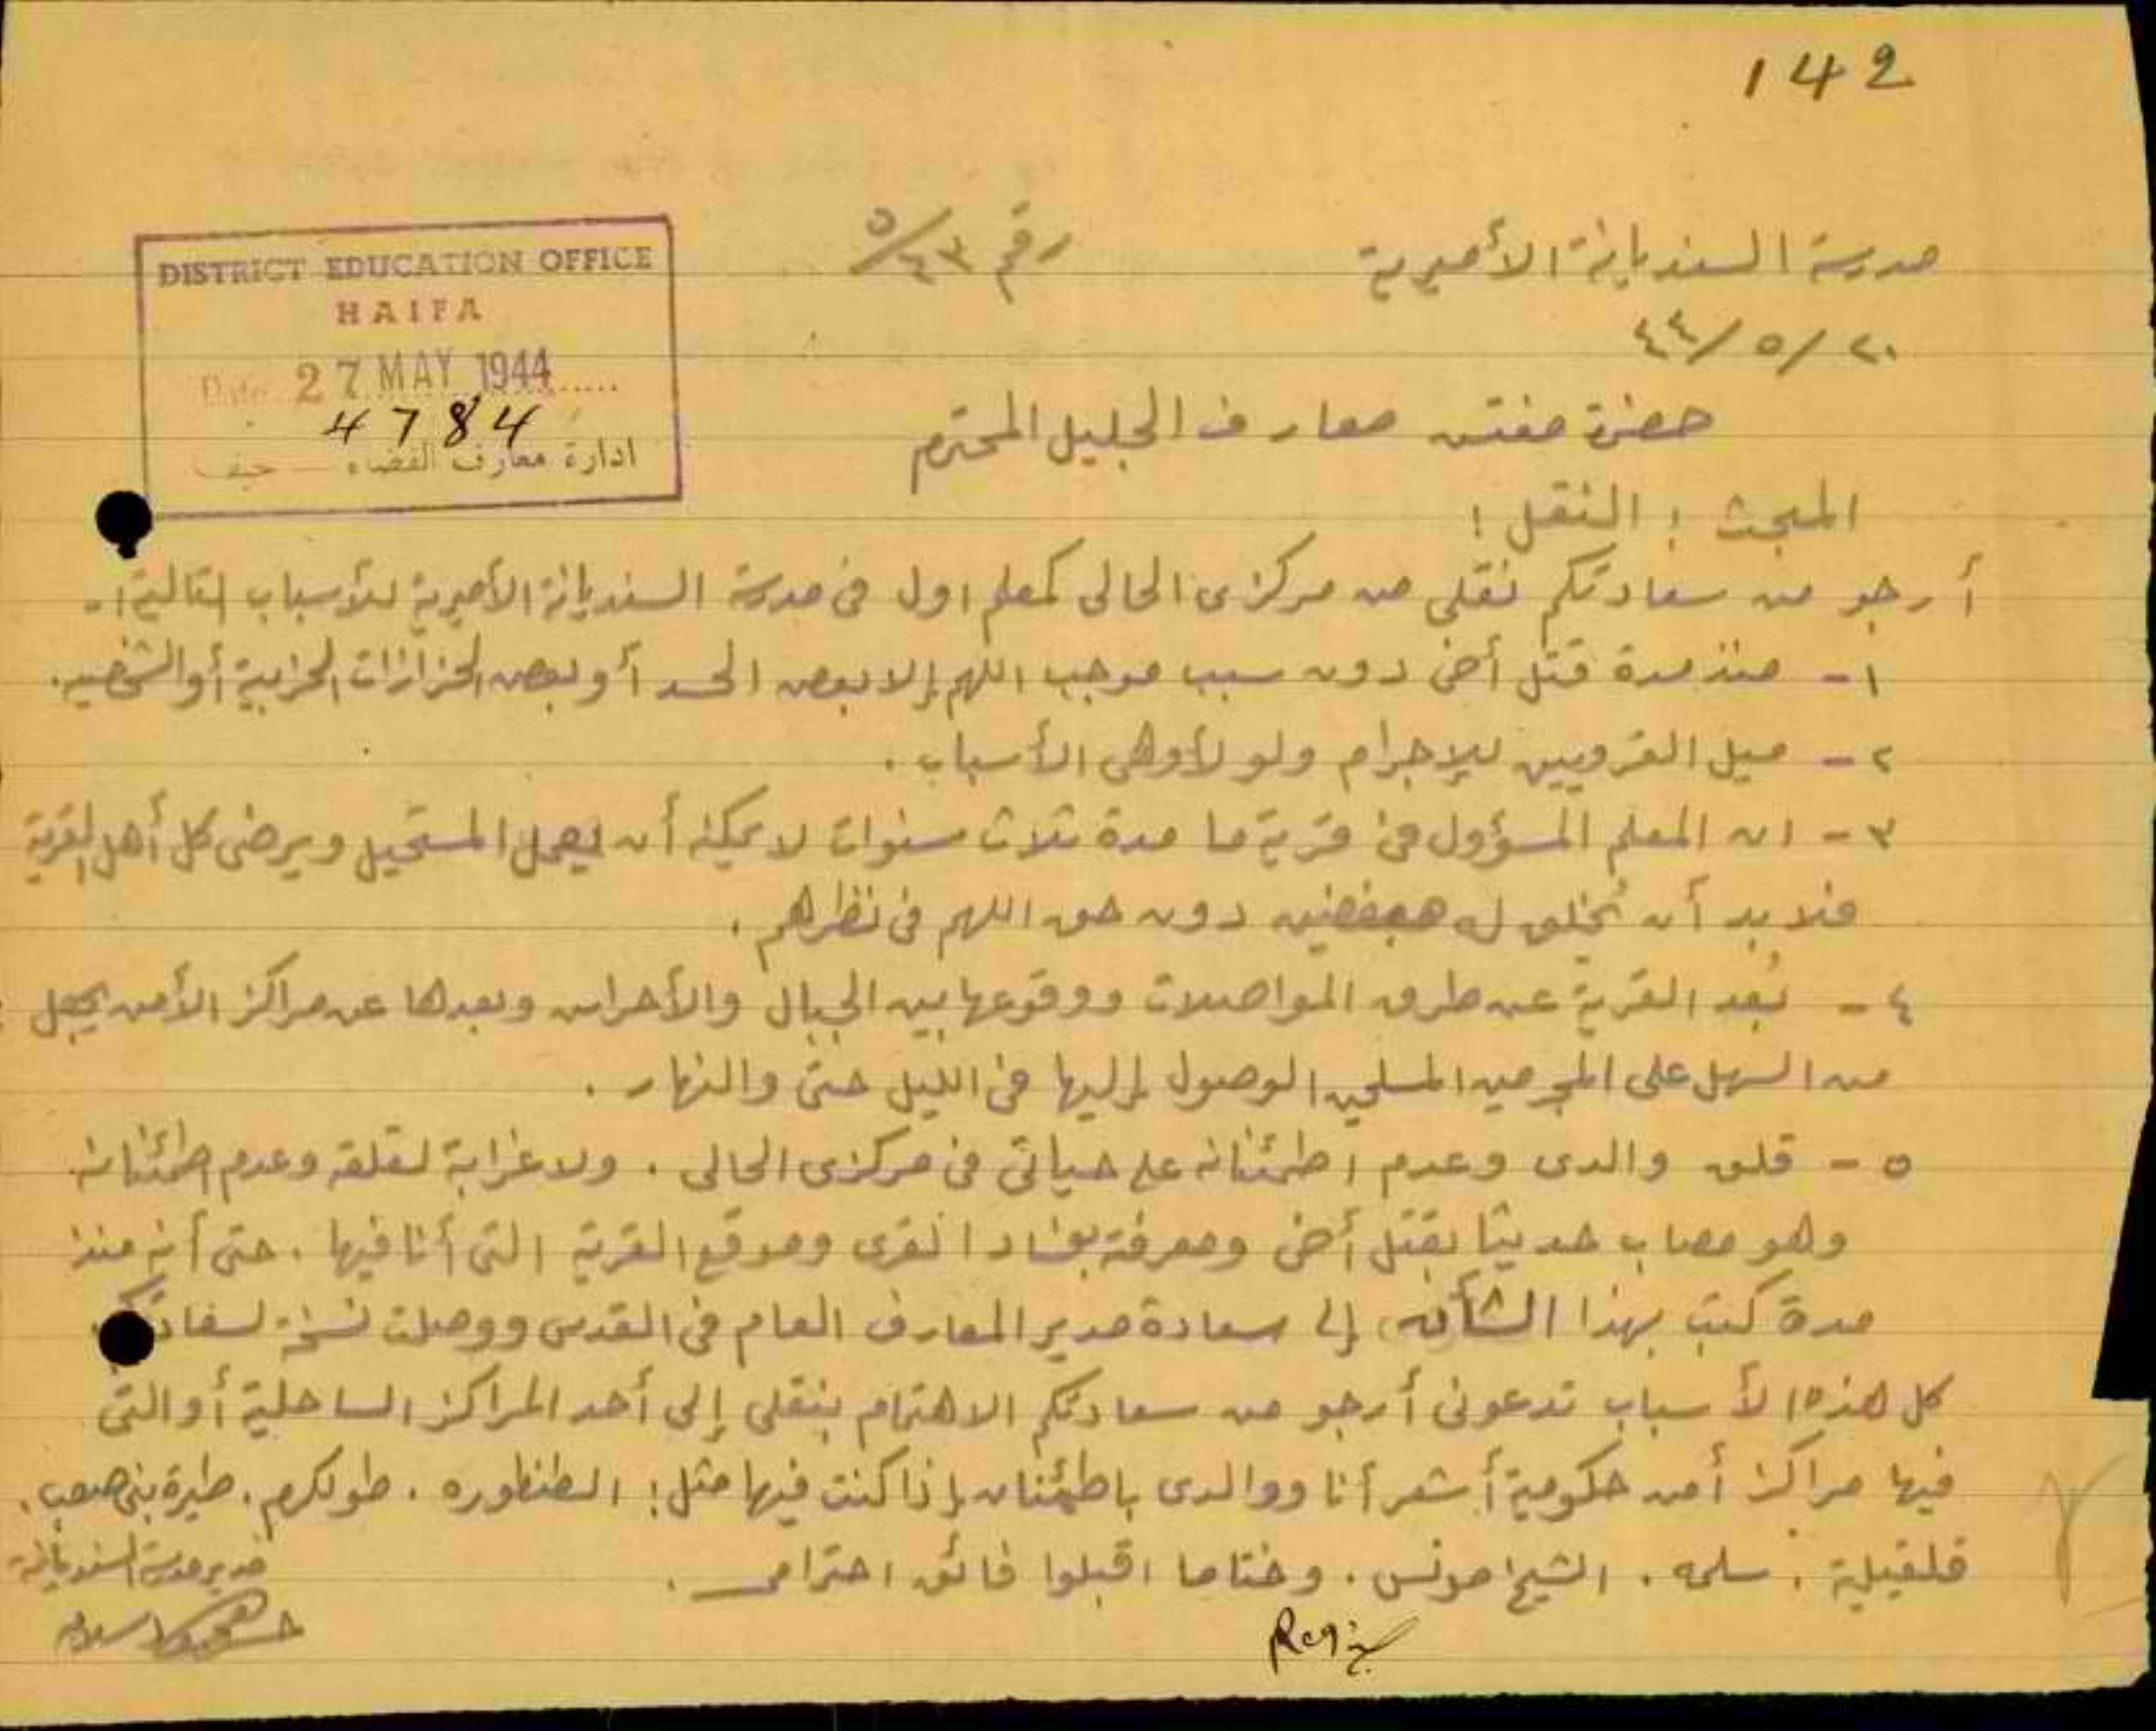 142
مدرسة السنديانة الأميرية
رقم ٥/٤٣
٢٠/٥/٤٤
DISTRICT EDUCATION OFFICE
HAIFA
Date 27 MAY 1944
4784
ادارة معارف القضاء حيفا
حضرة مفتش معارف الجليل المحترم
المبحث : النقل :
أرجو من سعادتكم نقلي من مركزي الحالي كمعلم اول في مدرسة السنديانة الأميرية للأسباب التالية :-
١- منذ مدة قتل أخي دون سبب موجب اللهم إلا بعض الحسد أو بعض الحزازات الحزبية أو الشخصية.
٢- ميل القرويين للإجرام ولو لأوهى الأسباب .
٣- ان المعلم المسؤول في قرية ما مدة ثلاث سنوات لا يمكنه أن يعمل المستحيل ويرضى كل أهل القرية
فلا بد أن يُخلق له مبغضين دون حق اللهم في نظرهم .
٤- بُعد القرية عن طرق المواصلات ووقوعها بين الجبال والأحراش وبعدها عن مراكز الأمن يجعل
من السهل على المجرمين المسلحين الوصول إليها في الليل حتى والنهار .
٥- قلق والدي وعدم اطمئنانه على حياتي في مركزي الحالي . ولا غرابة لقلقه وعدم اطمئنانه
وهو مصاب حديثا بقتل أخي ومعرفته بفساد القرى وموقع القرية التي أنا فيها . حتى أنه منذ
مدة كتب بهذا الشأن إلى سعادة مدير المعارف العام في القدس ووصلت نسخة لسعادتكم
كل هذه الأسباب تدعوني أرجو من سعادتكم الاهتمام بنقلي إلى أحد المراكز الساحلية أو التي
فيها مراكز أمن حكومية أشعر أنا ووالدي باطمئنان إذا كنت فيها مثل : الطنطوره . طولكرم . طيرة بني صعب .
قلقيلية . سلمه . الشيخ مونس . وختاما اقبلوا فائق احترامي .
مدير مدرسة السنديانة